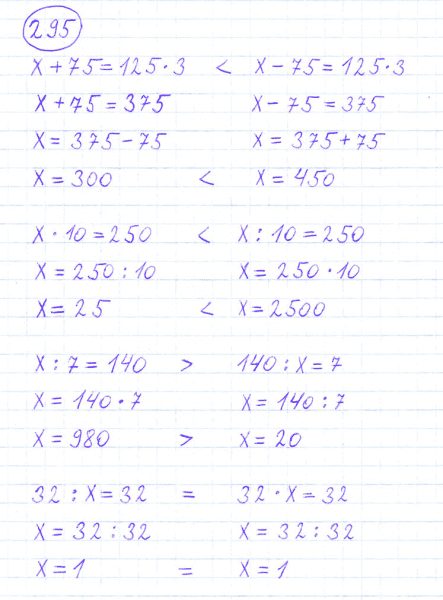 295
x + 75 = 125 · 3 < x − 75 = 125 · 3
x + 75 = 375 x − 75 = 375
x = 375 − 75 x = 375 + 75
x = 300 < x = 450
x · 10 = 250 < x : 10 = 250
x = 250 : 10 x = 250 · 10
x = 25 < x = 2500
x : 7 = 140 > 140 : x = 7
x = 140 · 7 x = 140 : 7
x = 980 > x = 20
32 : x = 32 = 32 · x = 32
x = 32 : 32 x = 32 : 32
x = 1 = x = 1